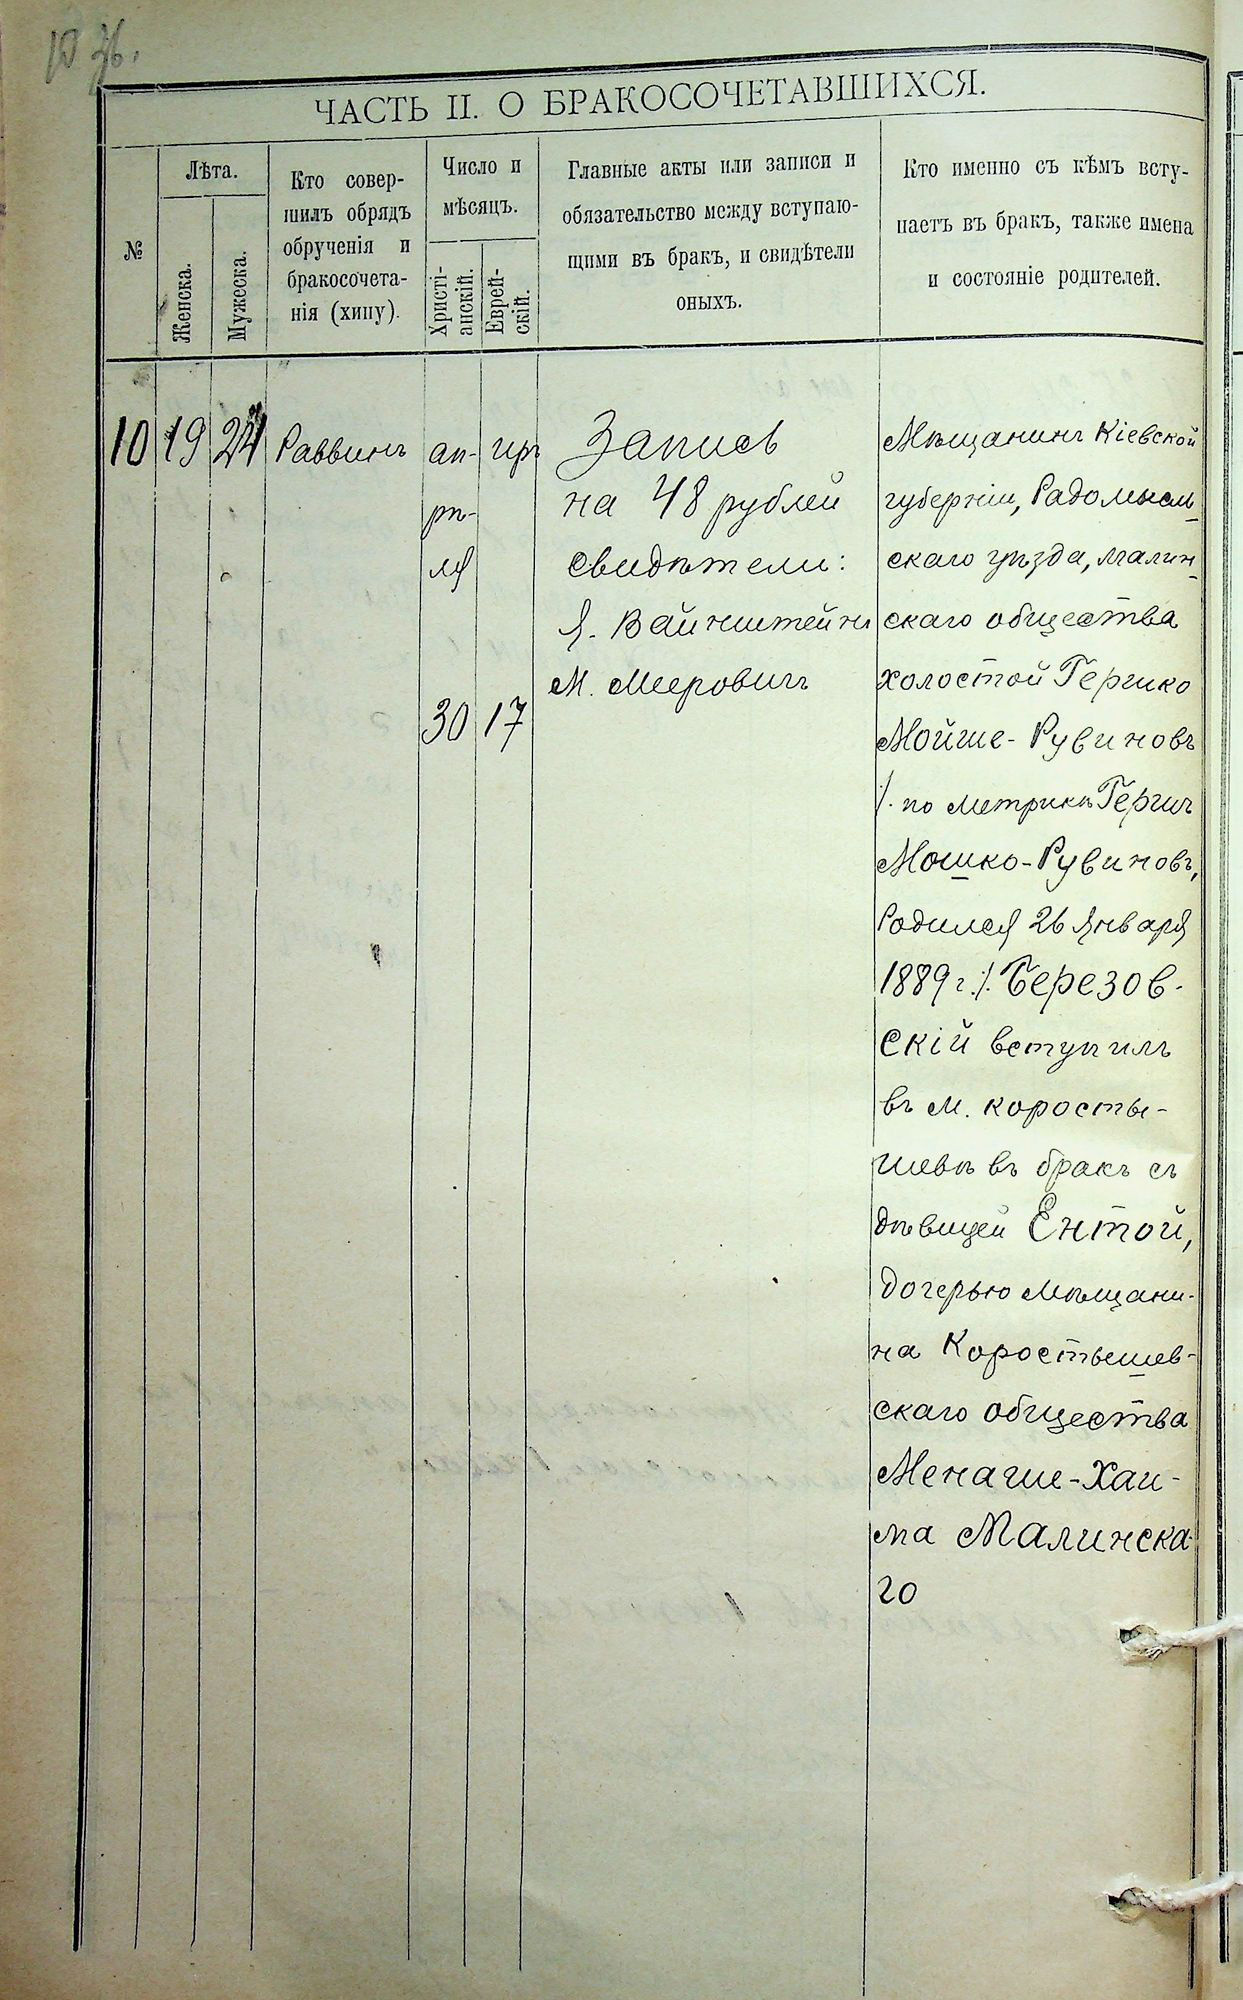 ЧАСТЬ II. О БРАКОСОЧЕТАВШИХСЯ.
№
Лѣта.
Женска.
Мужеска.
Кто совер-
шилъ обрядъ
обрученія и
бракосочета-
нія (хипу).
Число и
мѣсяцъ.
Христі-
анскій.
Еврей-
скій.
Главные акты или записи и
обязательство между вступаю-
щими въ бракъ, и свидѣтели
оныхъ.
Кто именно съ кѣмъ всту-
паетъ въ бракъ, также имена
и состояніе родителей.
10
19
24
Раввинъ
ап-
рѣ-
ля
30
іиръ
17
Запись
на 48 рублей
свидѣтели:
Я. Вайнштейнъ
М. Мееровичъ
Мѣщанинъ Кіевской
губерніи, Радомысль-
скаго уѣзда, Малин-
скаго общества
холостой Гершко
Мойше-Рувиновъ
/. по метрикѣ Гершъ
Мошко-Рувиновъ,
Родился 26 Января
1889 г./. Березов-
скій вступилъ
въ м. Коросты-
шевѣ въ бракъ съ
дѣвицей Ентой,
дочерью мѣщани-
на Коростышев-
скаго общества
Менаше-Хаи-
ма Малинска-
го